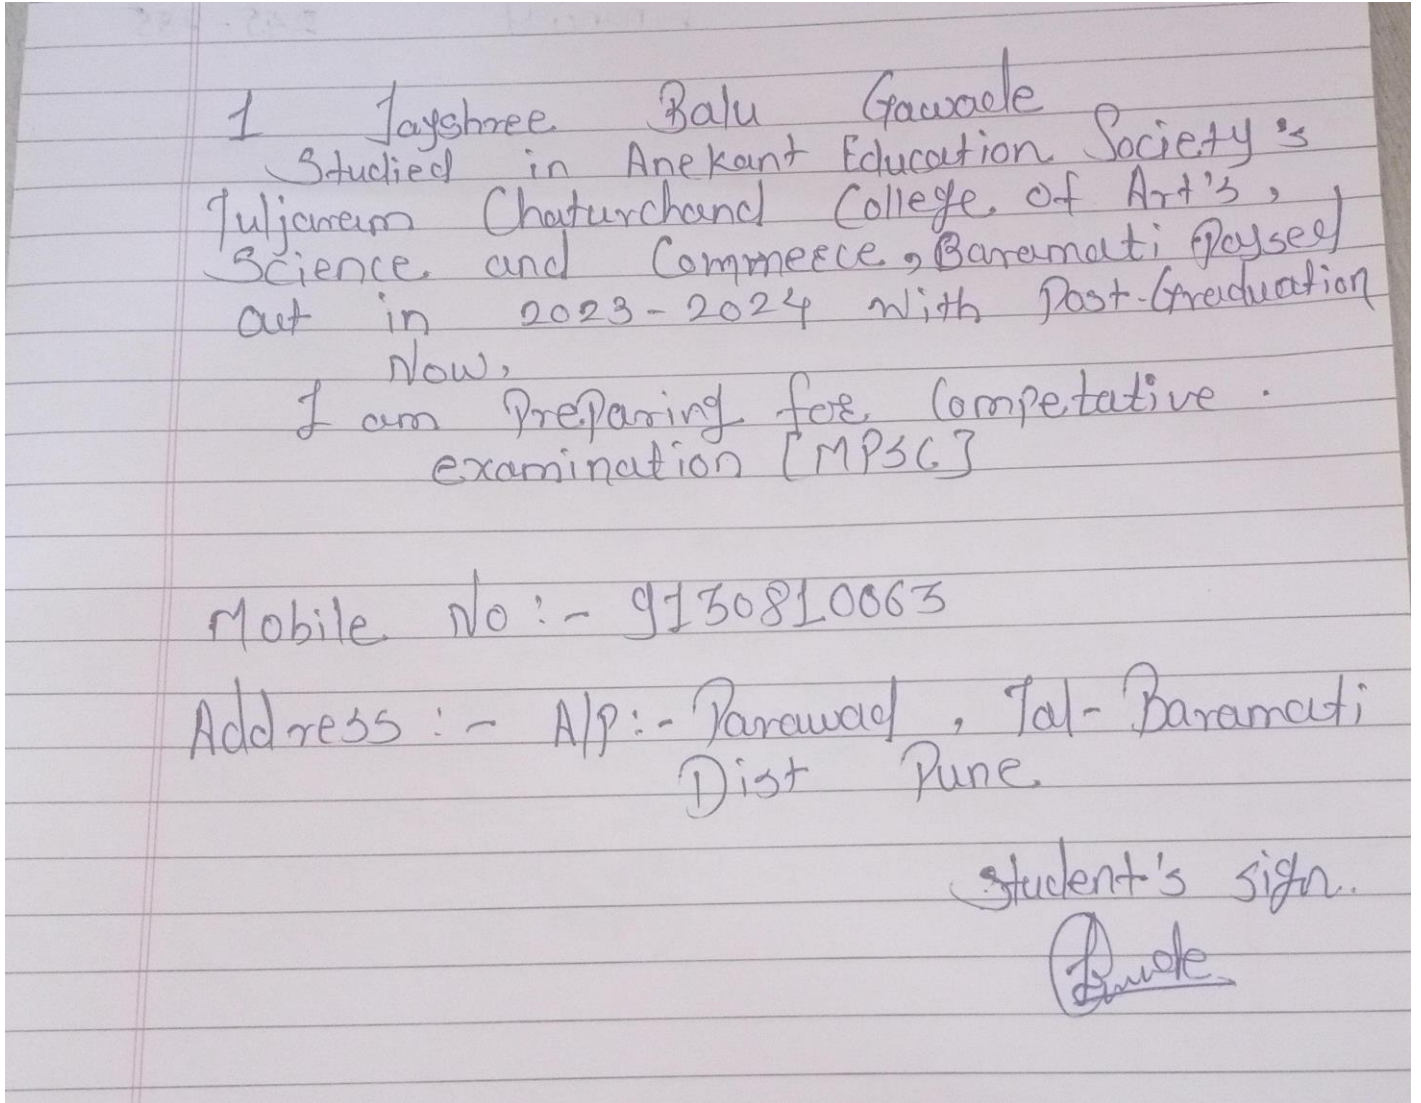 I Jayshree Balu Gawade
Studied in Anekant Education Society's
Tuljaram Chaturchand College of Art's,
Science and Commerce, Baramati Paysed
out in 2023-2024 with Post-Graduation
Now,
I am Preparing for Competative.
examination [MPSC]
Mobile No :- 9130810063
Address :- A/P:- Parawadi, Tal- Baramati
Dist Pune
Student's sign.